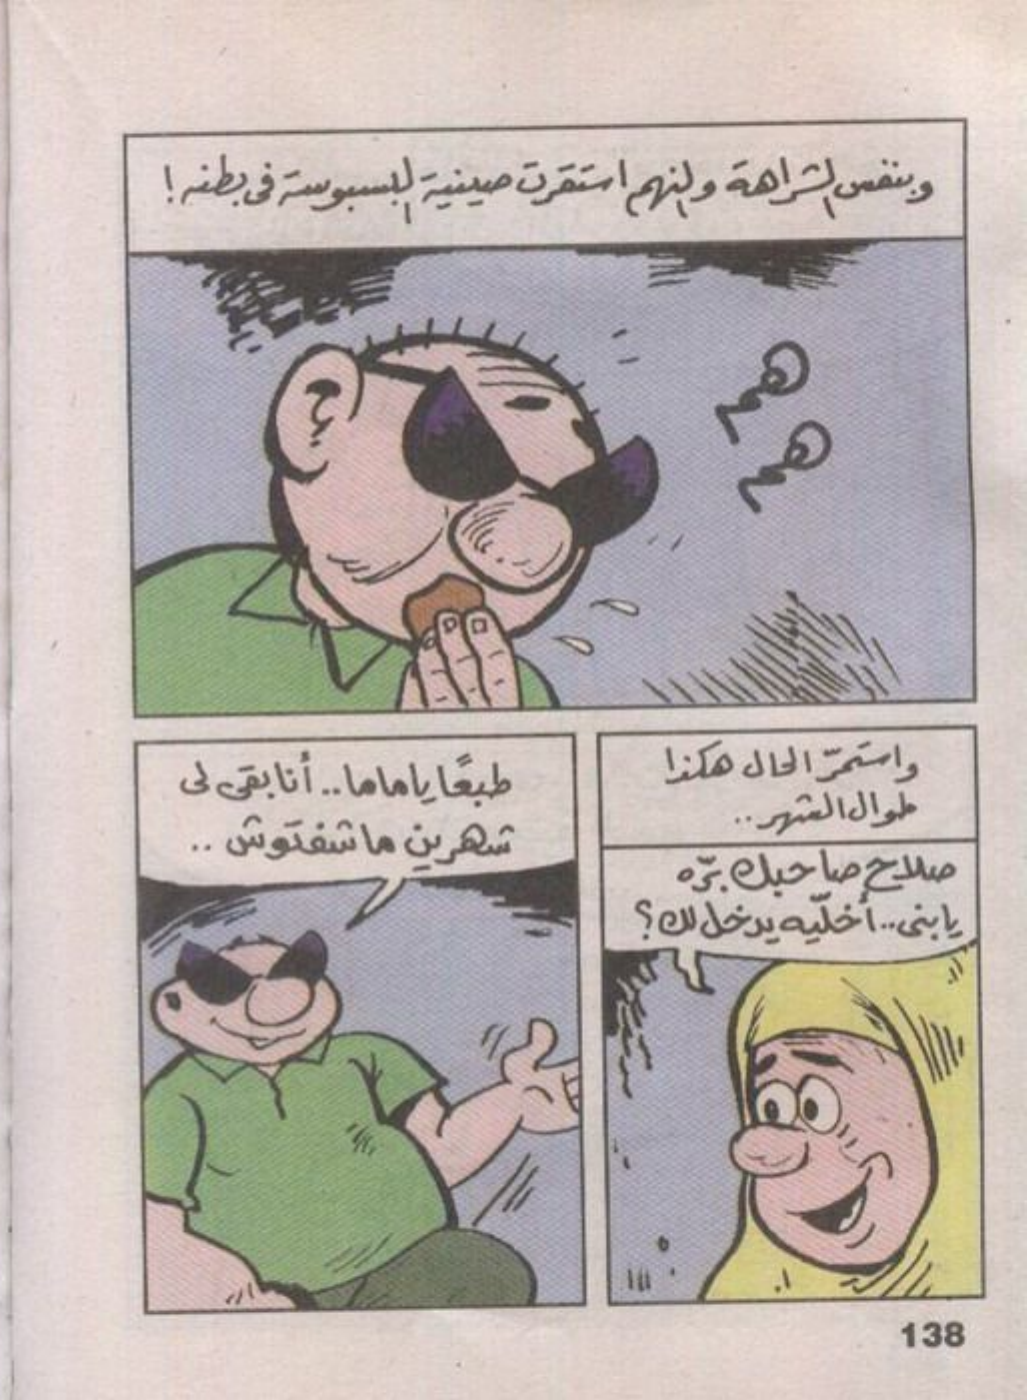 وبنفس الشراهة والنهم استقرت صينية البسبوسة فى بطنه!
هم
هم
واستمرّ الحال هكذا
طوال الشهر..
صلاح صاحبك برّه
يا بنى.. أخلّيه يدخل لك؟
طبعًا يا ماما.. أنا بقى لى
شهرين ما شفتوش..
138